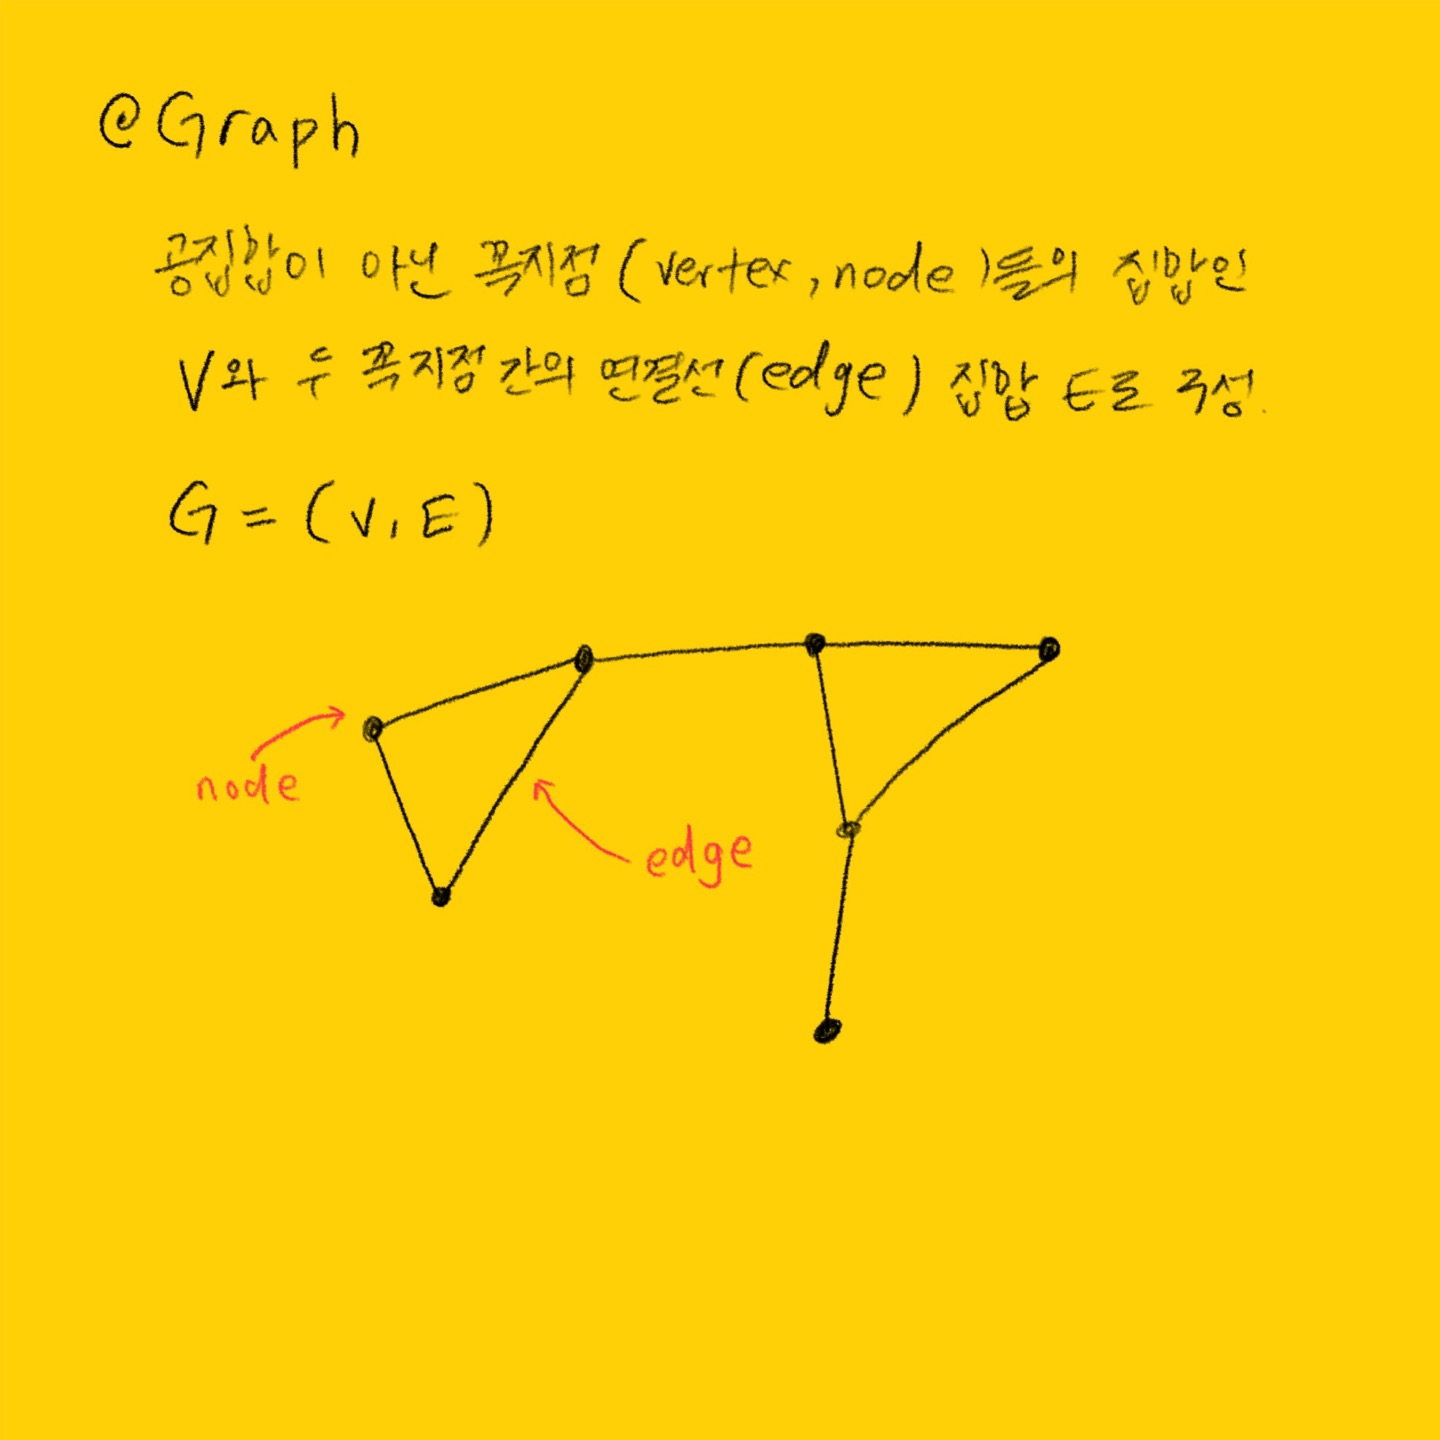 @Graph
공집합이 아닌 꼭지점 (vertex, node)들의 집합인
V와 두 꼭지점 간의 연결선(edge) 집합 E로 구성.
G = (V, E)
node
edge